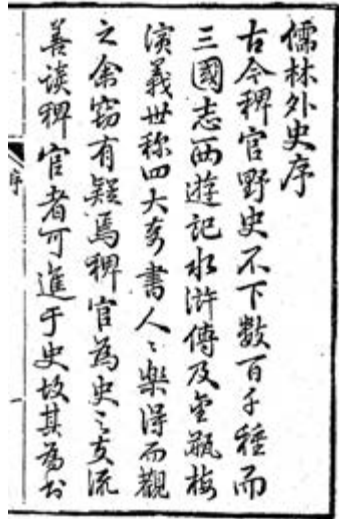 儒林外史序
古今稗官野史不下數百千種而
三國志西遊記水滸傳及金瓶梅
演義世称四大奇書人〻樂得而觀
之余竊有疑焉稗官為史之支流
善讀稗官者可進于史故其為書
序